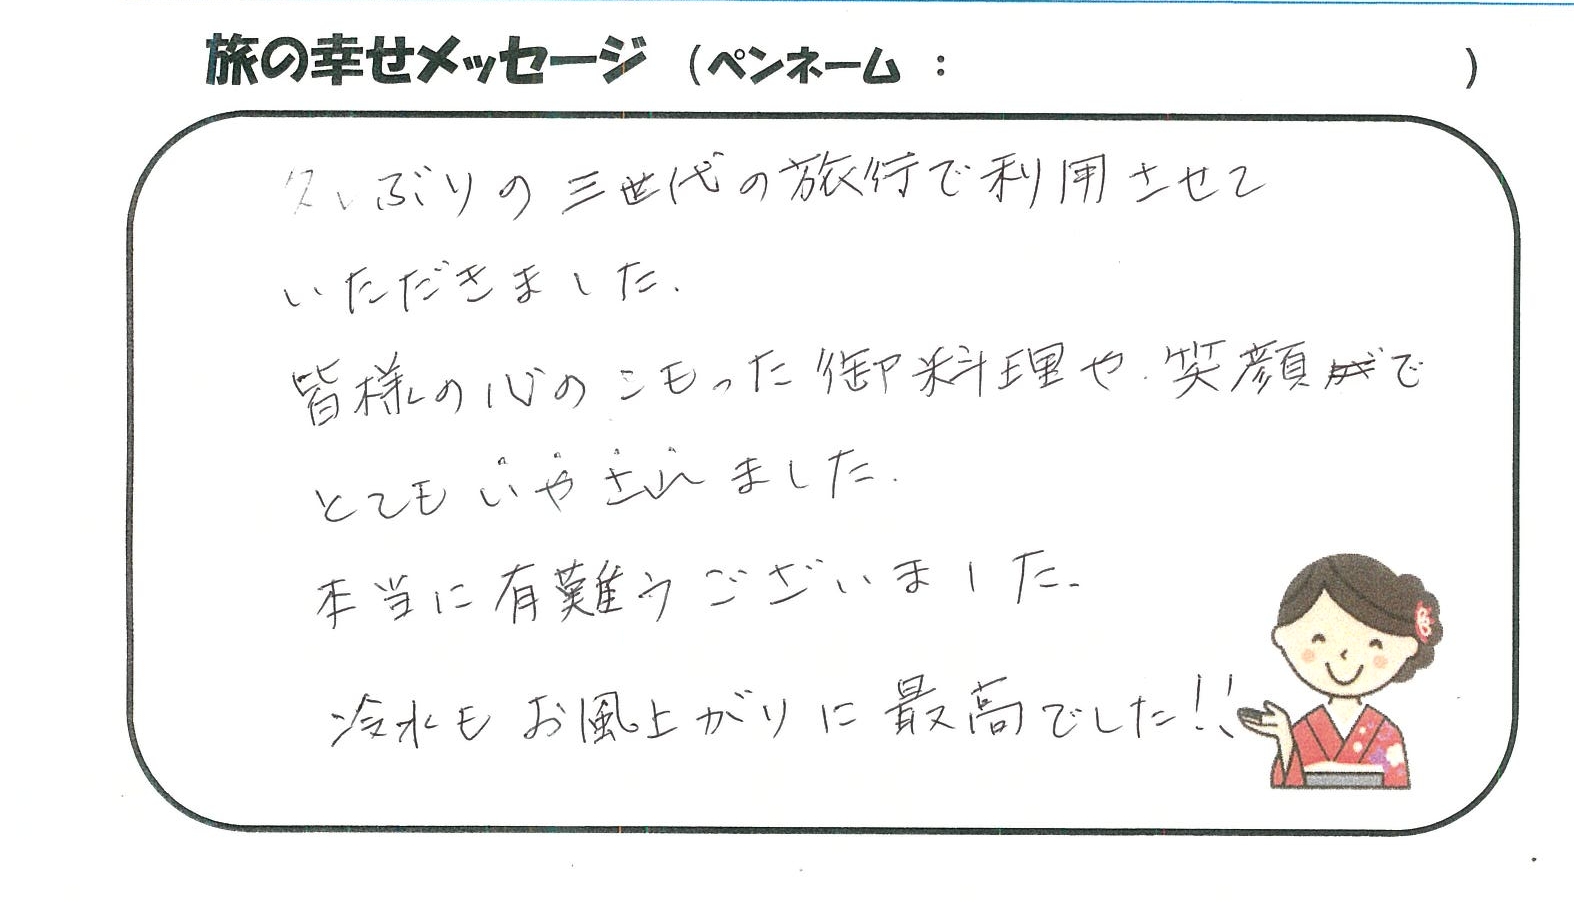 旅の幸せメッセージ （ペンネーム ： ）
久しぶりの三世代の旅行で利用させて
いただきました.
皆様の心のこもった御料理や.笑顔で
とてもいやされました.
本当に有難うございました.
冷水もお風呂上がりに最高でした!!